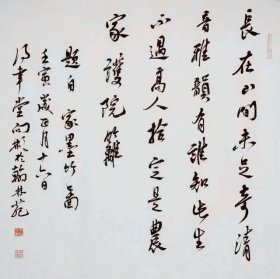 長在山間未足奇清
音雅韻有誰知此生
不遇高人拾定是農
家護院籬
題自家墨竹圖
壬寅歲正月十六日
得章堂向彬於翰林苑